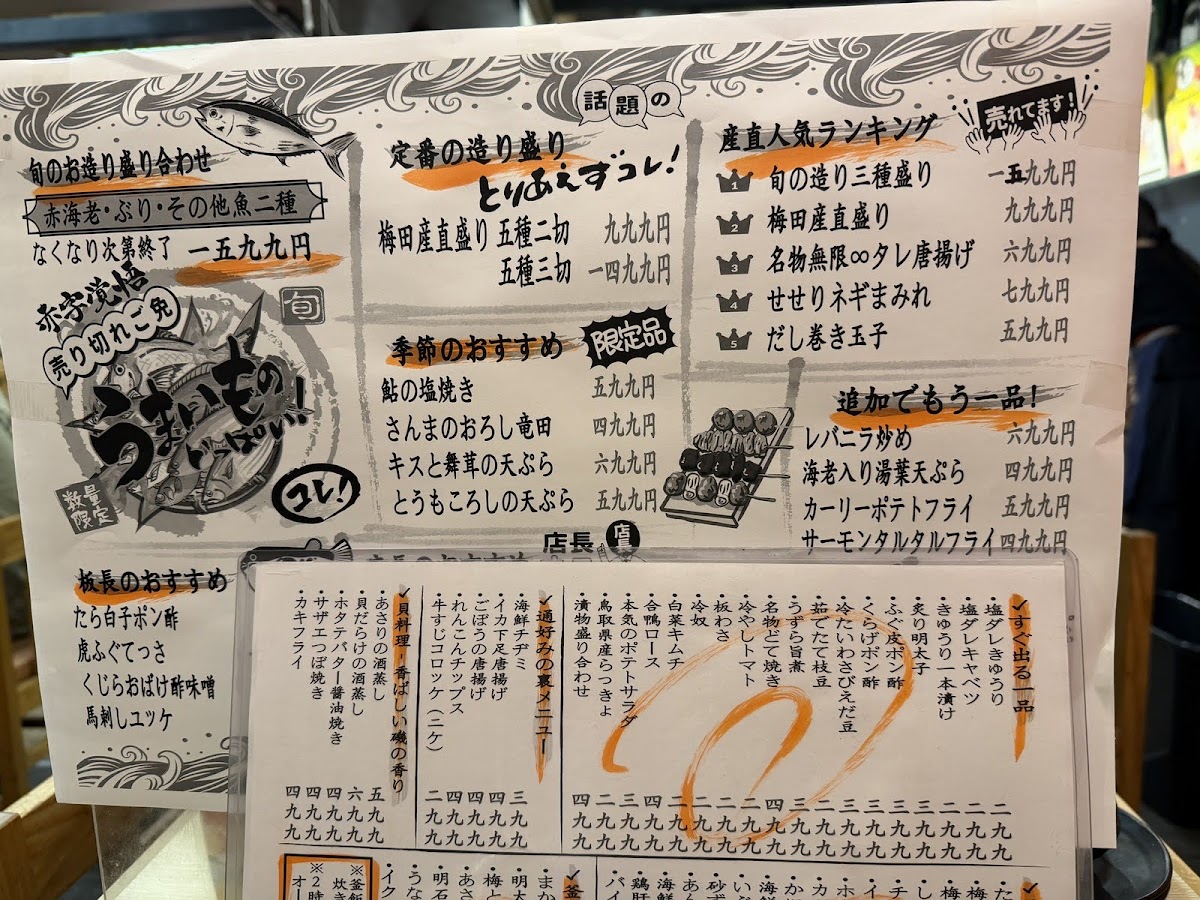 旬のお造り盛り合わせ
赤海老・ぶり・その他魚二種
なくなり次第終了 一五九九円
赤字覚悟
売り切れご免
旬
うまいもの
いっぱい!
数量
限定
コレ!
板長のおすすめ
たら白子ポン酢
虎ふぐてっさ
くじらおばけ酢味噌
馬刺しユッケ
話題の
定番の造り盛り
とりあえずコレ!
梅田産直盛り 五種二切 九九九円
五種三切 一四九九円
季節のおすすめ
限定品
鮎の塩焼き 五九九円
さんまのおろし竜田 四九九円
キスと舞茸の天ぷら 六九九円
とうもころしの天ぷら 五九九円
店長
産直人気ランキング
売れてます!
1 旬の造り三種盛り 一五九九円
2 梅田産直盛り 九九九円
3 名物無限∞タレ唐揚げ 六九九円
4 せせりネギまみれ 七九九円
5 だし巻き玉子 五九九円
追加でもう一品!
レバニラ炒め 六九九円
海老入り湯葉天ぷら 四九九円
カーリーポテトフライ 五九九円
サーモンタルタルフライ 四九九円
✓すぐ出る一品
・塩ダレきゅうり 二九九
・塩ダレキャベツ 二九九
・きゅうり一本漬け 二九九
・炙り明太子 三九九
・ふぐ皮ポン酢 三九九
・くらげポン酢 三九九
・冷たいわさびえだ豆 三九九
・茹でたて枝豆 二九九
・うずら旨煮 三九九
・名物どて焼き 四九九
・冷やしトマト 二九九
・板わさ 二九九
・冷奴 二九九
・白菜キムチ 二九九
・合鴨ロース 四九九
・本気のポテトサラダ 三九九
・鳥取県産らっきょ 二九九
・漬物盛り合わせ 四九九
✓通好みの裏メニュー
・海鮮チヂミ 三九九
・イカ下足唐揚げ 四九九
・ごぼうの唐揚げ 四九九
・れんこんチップス 四九九
・牛すじコロッケ(二ケ) 二九九
✓貝料理!香ばしい磯の香り
・あさりの酒蒸し 五九九
・貝だらけの酒蒸し 六九九
・ホタテバター醤油焼き 四九九
・サザエつぼ焼き 四九九
・カキフライ 四九九